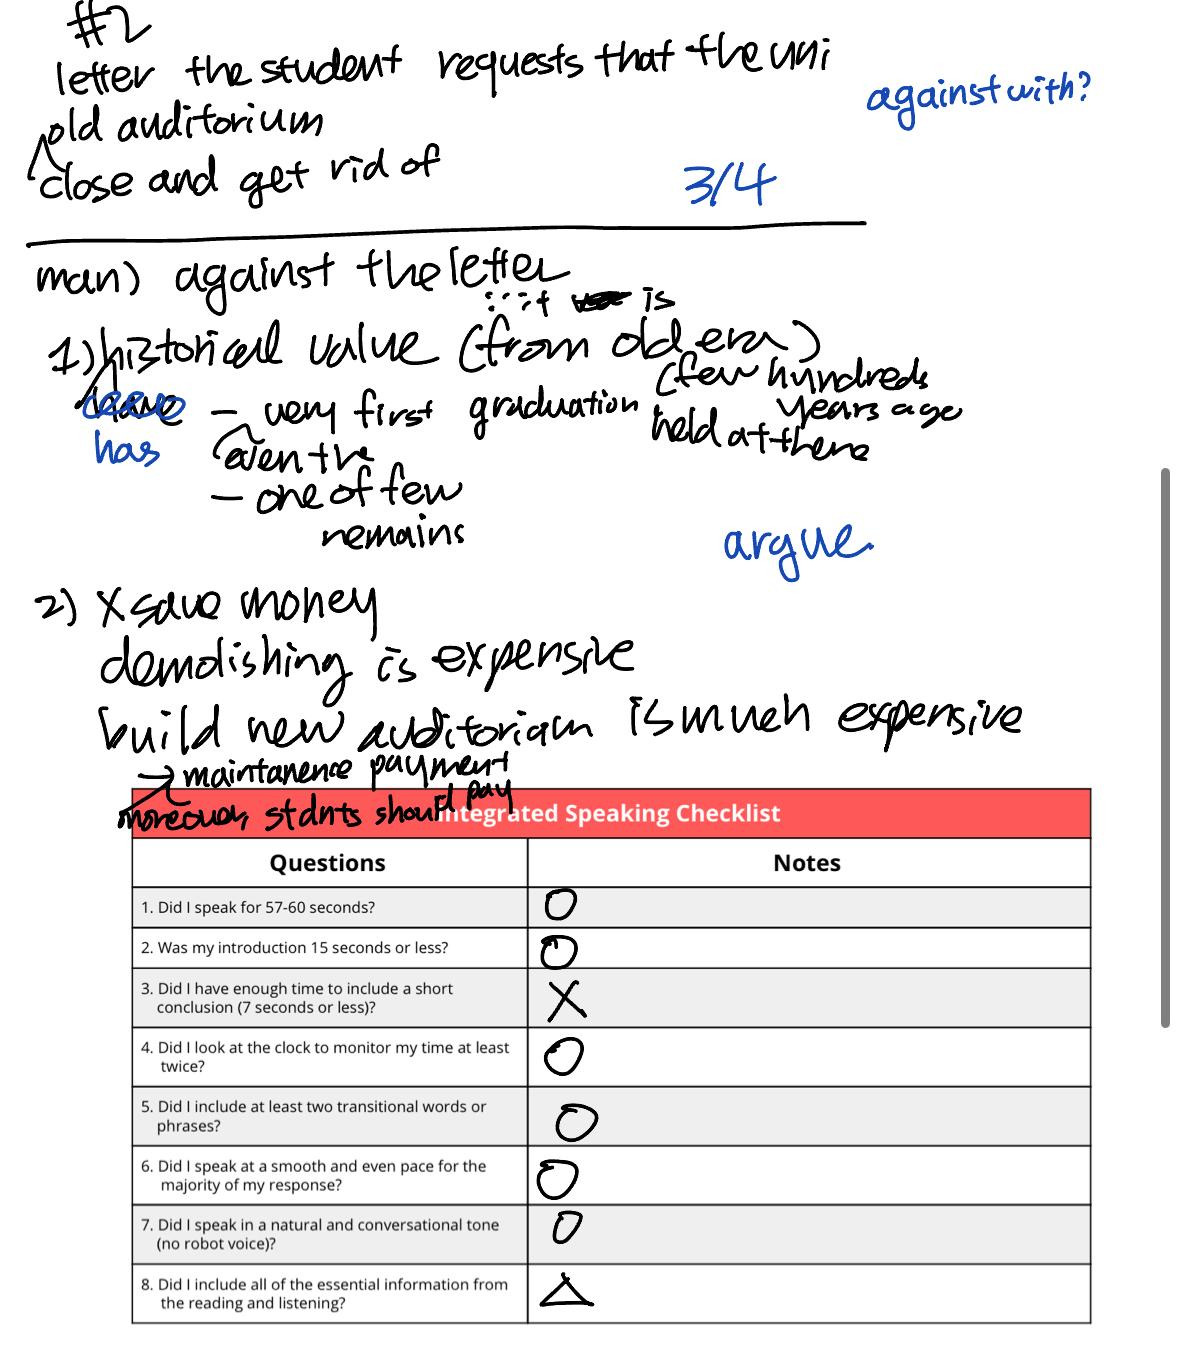 #2
letter the student requests that the uni
against with?
old auditorium
close and get rid of
3/4
man) against the letter
∵ it is
1) historical value (from old era)
(few hundreds
years age
has
- very first graduation held at there
even the
- one of few
remains
argue.
2) X save money
demolishing is expensive
build new auditorium is much expensive
→ maintanence payment
moreover, stdnts should pay
Integrated Speaking Checklist
Questions Notes
1. Did I speak for 57-60 seconds? O
2. Was my introduction 15 seconds or less? O
3. Did I have enough time to include a short
conclusion (7 seconds or less)? X
4. Did I look at the clock to monitor my time at least
twice? O
5. Did I include at least two transitional words or
phrases? O
6. Did I speak at a smooth and even pace for the
majority of my response? O
7. Did I speak in a natural and conversational tone
(no robot voice)? O
8. Did I include all of the essential information from
the reading and listening? △